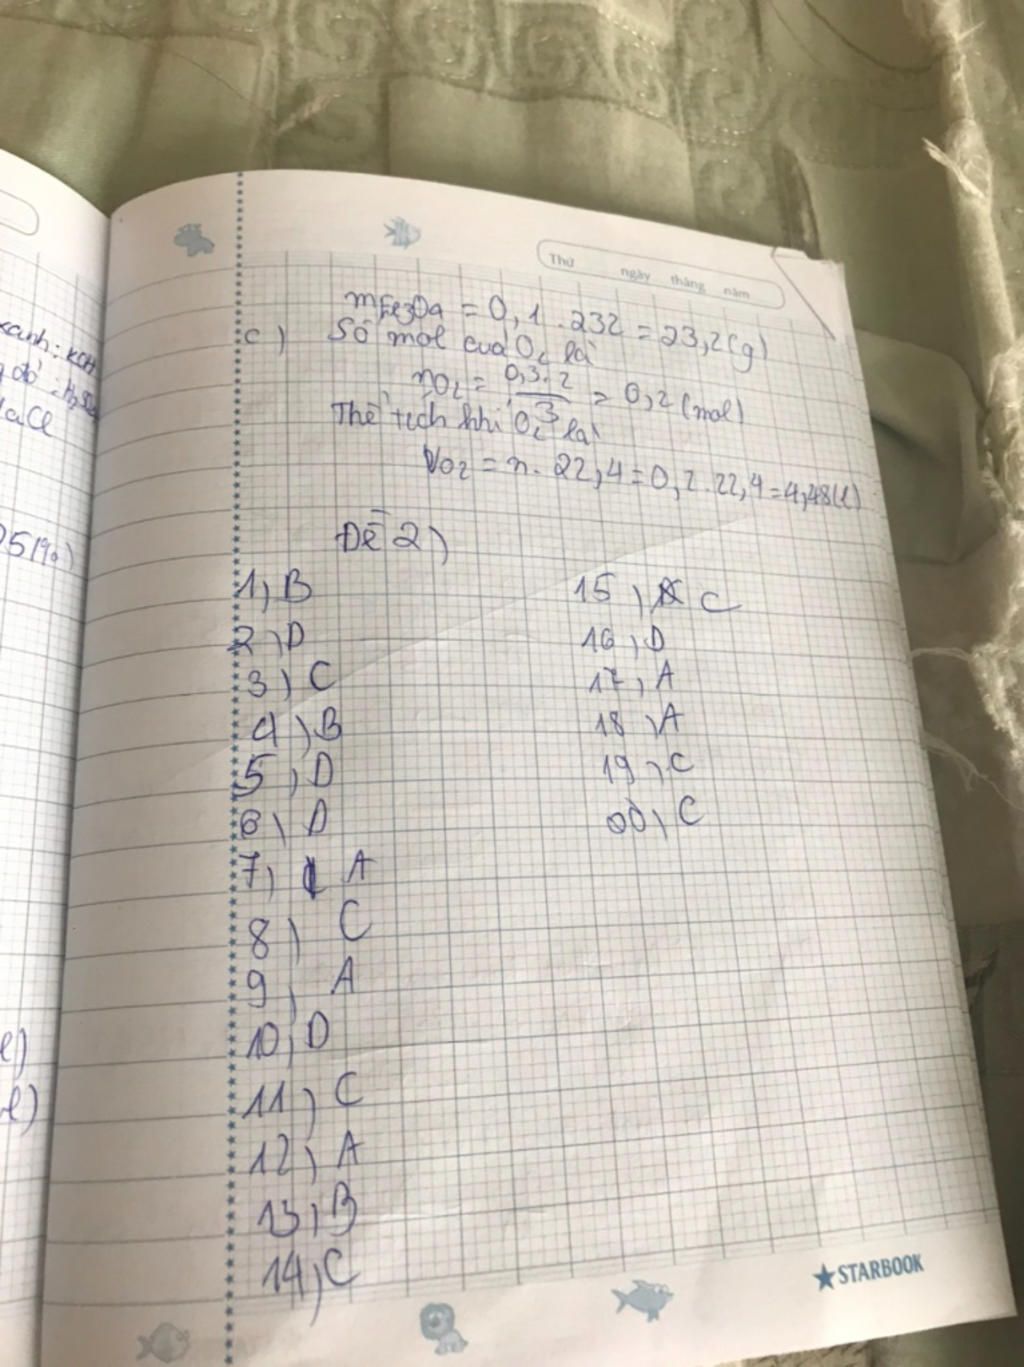 Thứ ngày tháng năm
mFe3O4 = 0,1 . 232 = 23,2(g)
c) Số mol của O2 là
nO2 = 0,3.2/3 = 0,2 (mol)
Thể tích khí O2 là
VO2 = n. 22,4 = 0,2.22,4 = 4,48(l)
Đề 2)
1, B
2, D
3) C
4) B
5, D
6) D
7, A
8) C
9, A
10, D
11) C
12) A
13, B
14, C
15, C
16, D
17, A
18, A
19, C
00, C
xanh: KOH
đỏ: H2SO4
NaCl
STARBOOK